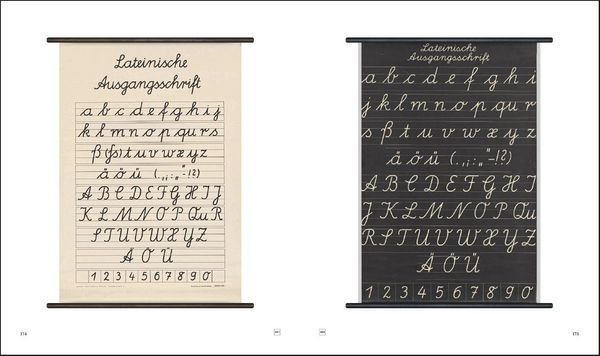 Lateinische
Ausgangsschrift
a b c d e f g h i j
k l m n o p qu r s
ß (ſs) t u v w x y z
ä ö ü (.,;:„“-!?)
A B C D E F G H I J
K L M N O P Qu R
S T U V W X Y Z
Ä Ö Ü
1 2 3 4 5 6 7 8 9 0
174
Lateinische
Ausgangsschrift
a b c d e f g h i
j k l m n o p qu r
s ß t u v w x y z
ä ö ü (.,;:„“-!?)
A B C D E F G H I J
K L M N O P Qu
R S T U V W X Y Z
Ä Ö Ü
1 2 3 4 5 6 7 8 9 0
175